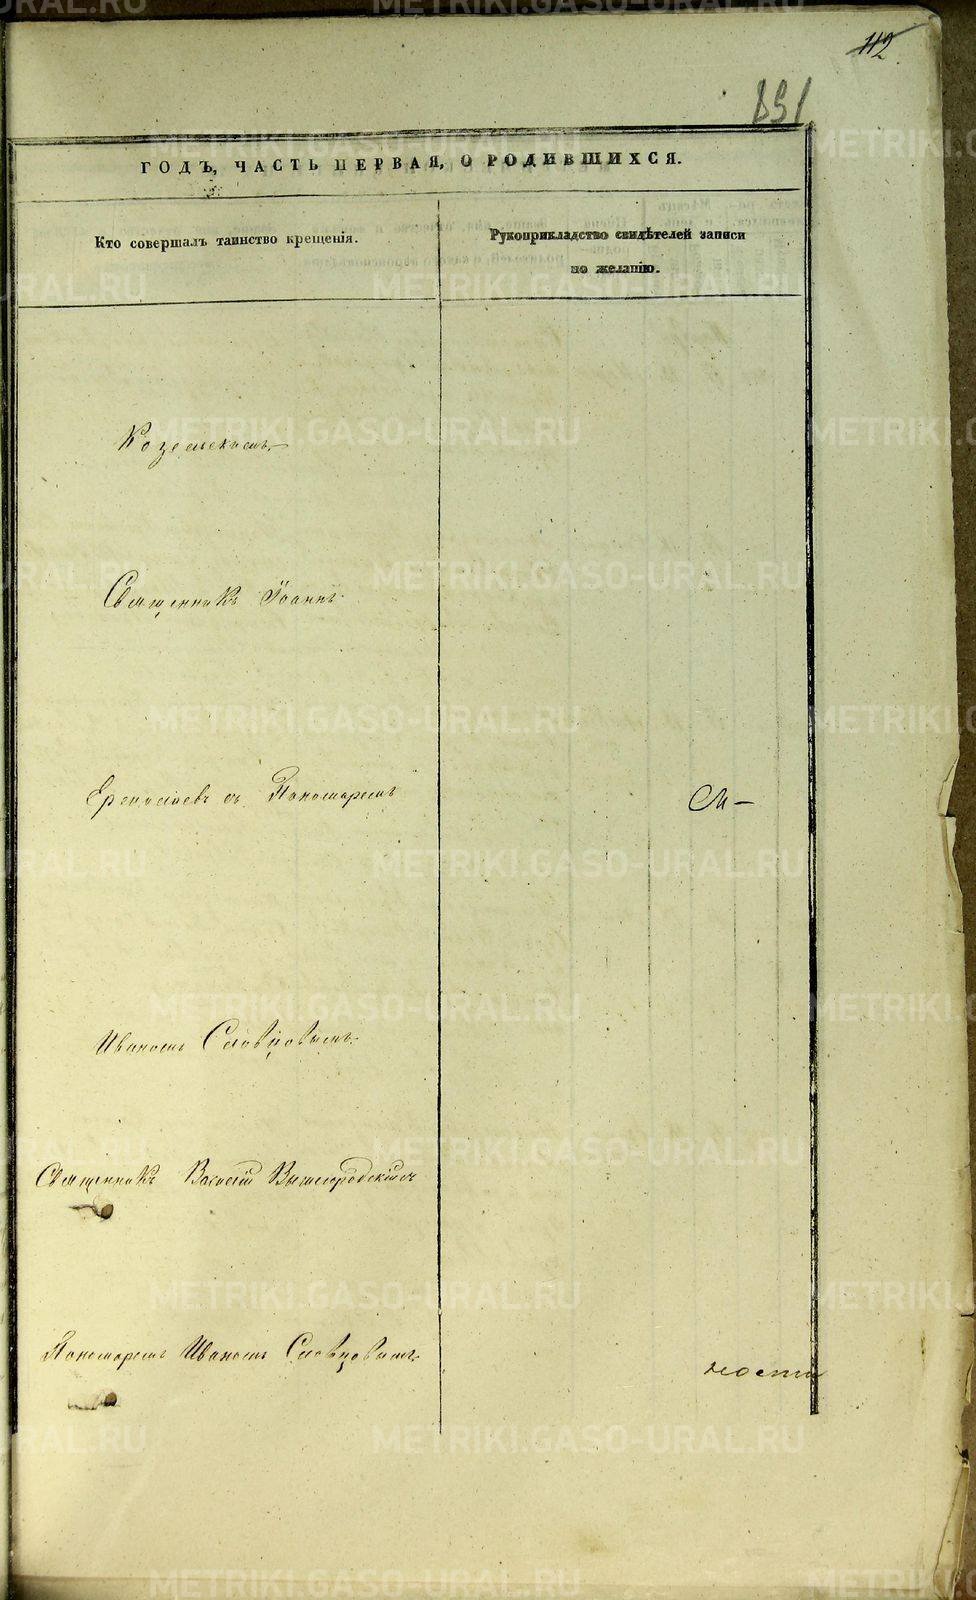 112
151
ГОДЪ, ЧАСТЬ ПЕРВАЯ, О РОДИВШИХСЯ.
Кто совершалъ таинство крещенія.
Рукоприкладство свидѣтелей записи
по желанію.
Козельскимъ.
Священникъ Іоаннъ
съ Пономаремъ
См-
Иваномъ Словцовымъ.
Священникъ Василій Вышегородскій съ
Пономаремъ Иваномъ Словцовымъ.
ности
METRIKI.GASO-URAL.RU